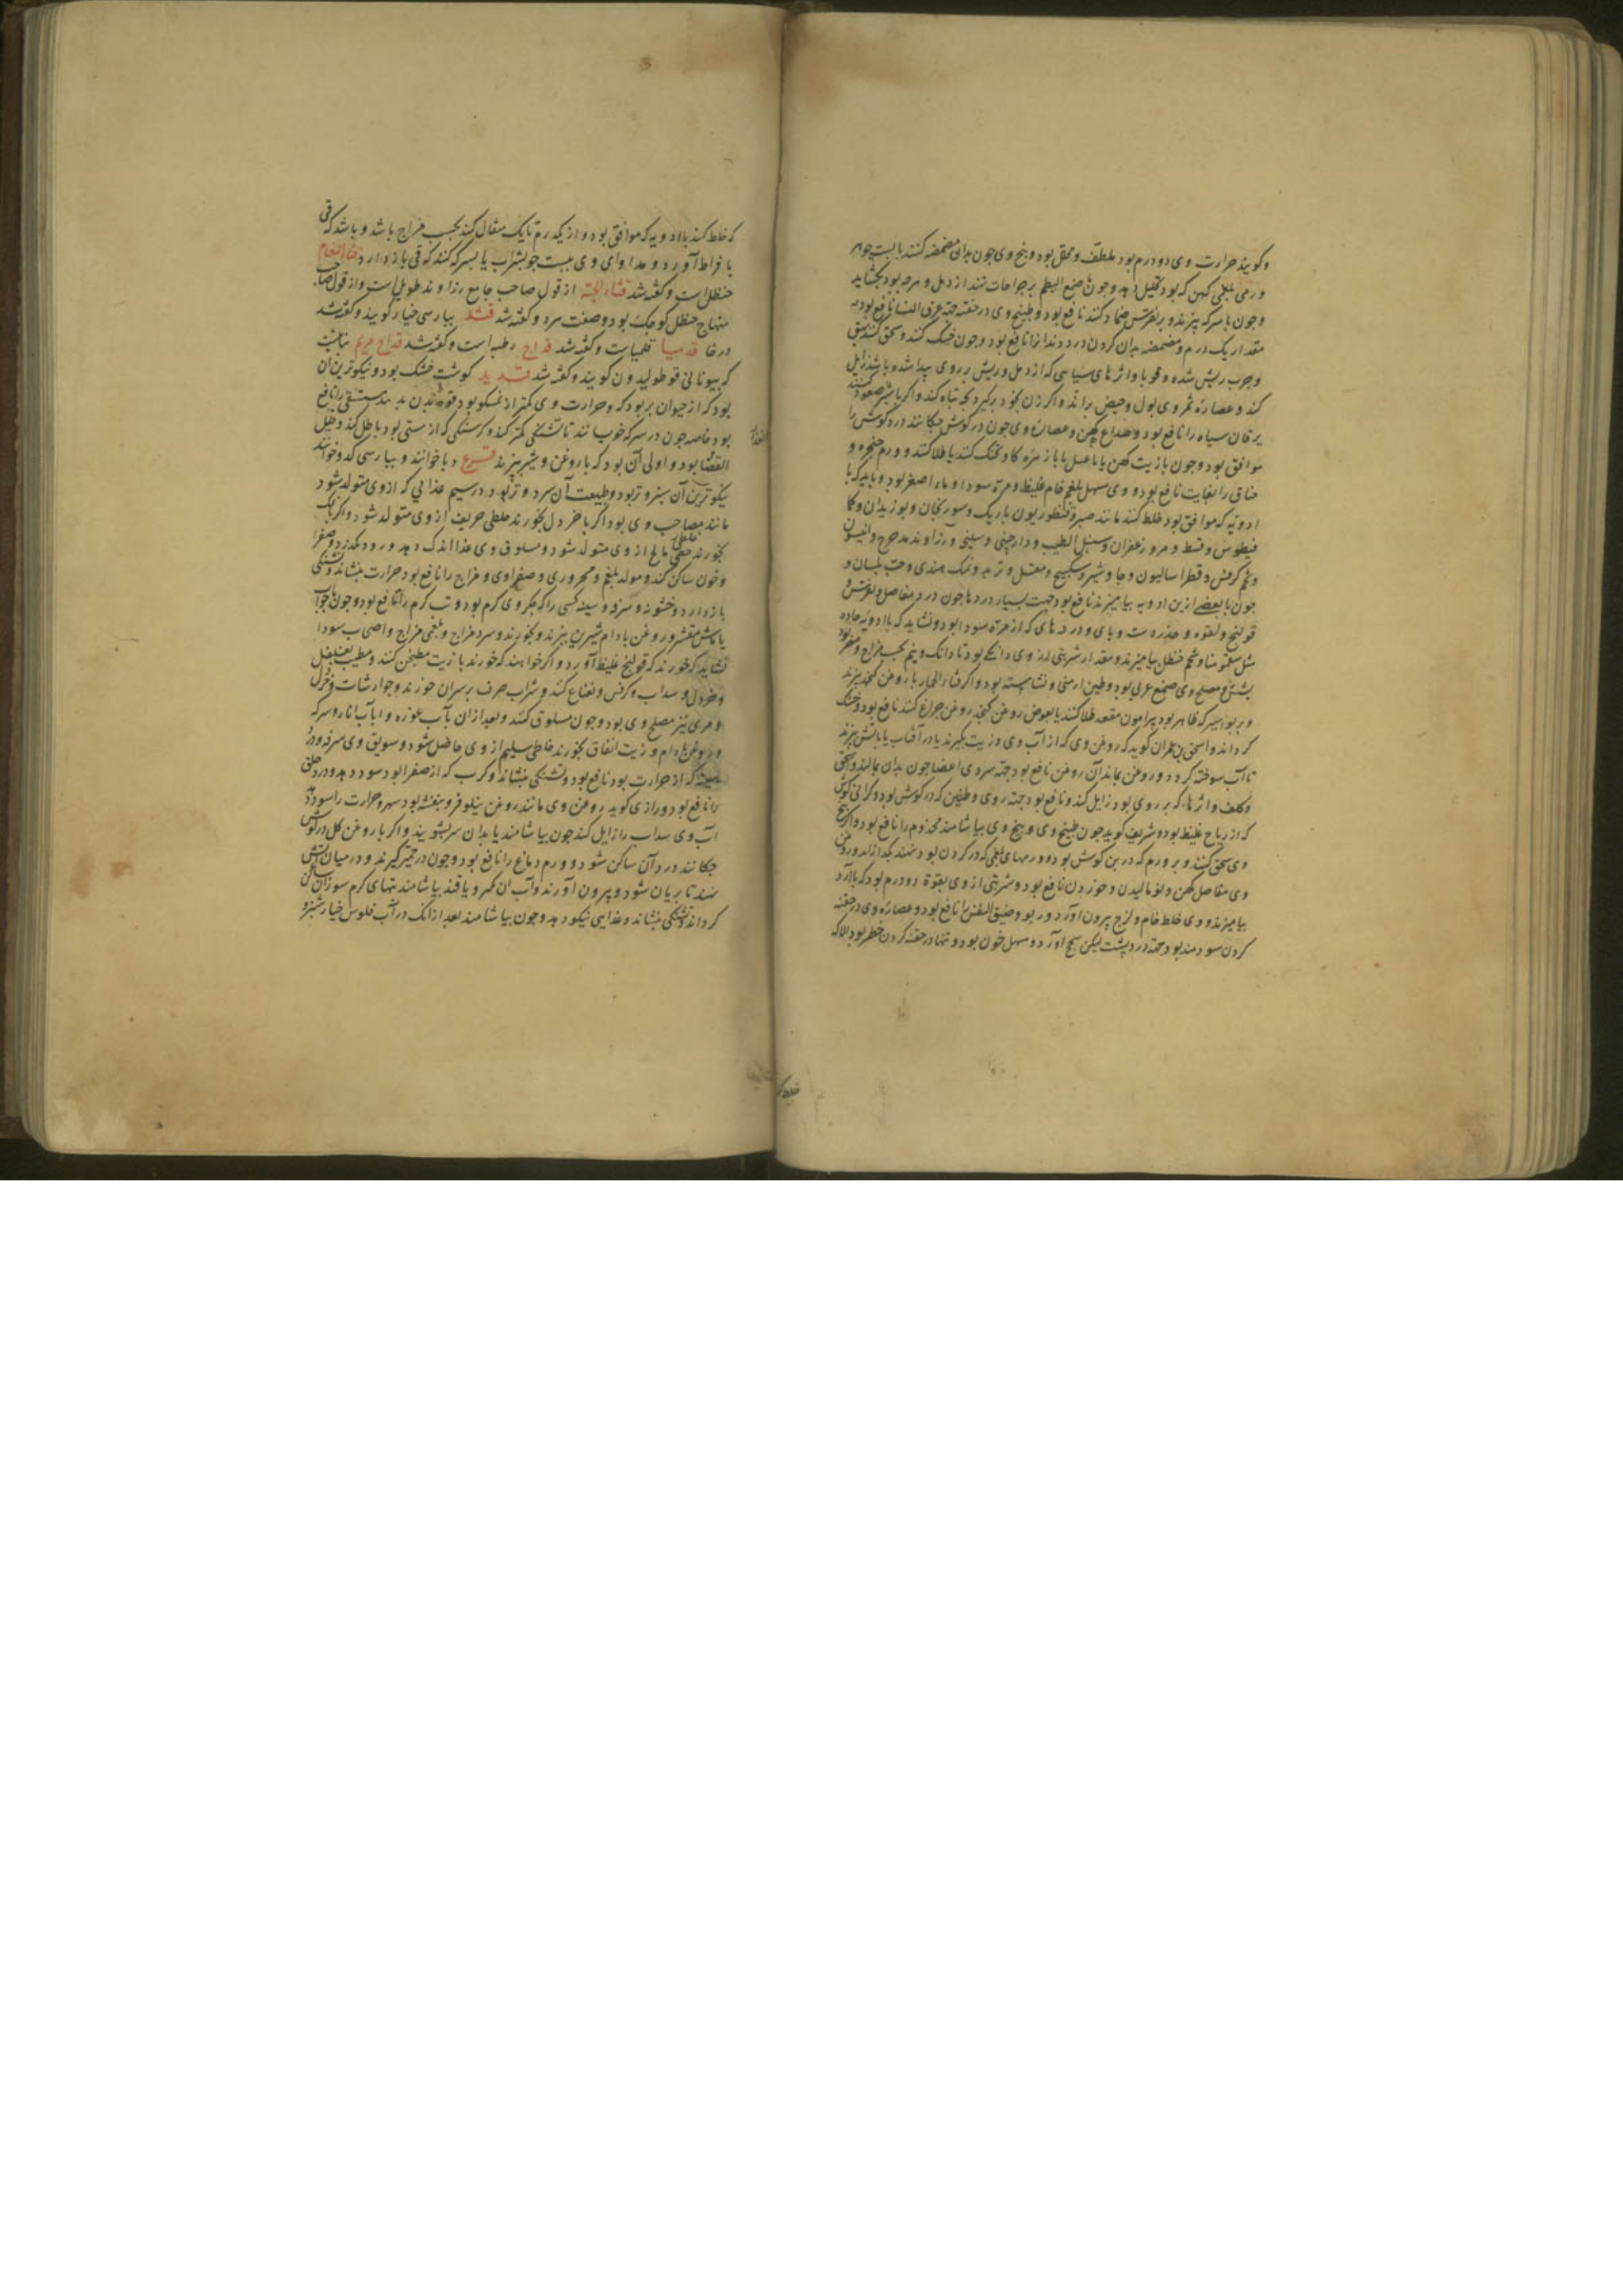 وکویند حرارت وی دو درم بود ملطف و محلل بود و بیخ وی چون بدان مضمضه کنند با بست جو هر
ورمی بلغمی کهن که بود تحلیل دهد و چون با صمغ البطم بر جراحات نهند از دمل و مرصه بود بکشاید
و چون با سرکه بپزند و بر نقرس ضماد کنند نافع بود و طبیخ وی در حقنه جهة عرق النسا نافع بود
مقدار یک درم و مضمضه بدان کردن درد دندانرا نافع بود و چون خشک کنند و سحق کنند بهق
وجرب ریش شده و قوبا و اثرهای سیاهی که از دمل و ریش بر روی پیدا شده باشد زایل
کند و عصاره ثمر وی بول و حیض براند و اکر زن بخود برکیرد بچه تباه کند و اکر با شیر صعود کنند
یرقان سیاه را نافع بود و صداع کهن و عصاره وی چون در کوش چکانند درد کوش را
موافق بود و چون با زیت کهن یا با عسل یا با زهره کاو تحنک کنند یا طلا کنند و ورم حنجره و
خناق را بغایت نافع بود و وی مسهل بلغم خام غلیظ و مرة سودا و ماء اصفر بود و باید که با
ادویه که موافق بود خلط کنند مانند صبر و قنطوریون باریک و سورنجان و بوزیدان و کما
فیطوس و قسط و مر و زعفران و سنبل الطیب و دارچینی و سلیخه و زراوند مدحرج و انیسون
و تخم کرفس و قطراسالیون و جاوشیر و سکبینج و مقل و تربد و نمک هندی و حب بلسان و
چون با بعضی ازین ادویه بیامیزند نافع بود جهت بسیار دردها چون درد مفاصل و نقرس و
قولنج و لقوه و خدر دست و پای و دردهای که از مرة سودا بود و نشاید که با ادویه حاده
مثل سقمونیا و شحم حنظل بیامیزند و مقدار شربتی از وی دانکی بود تا دانک و نیم بحسب مزاج و مضر بود
بشش و مصلح وی صمغ عربی بود و طین ارمنی و نشاسته بود و اکر قثاء الحمار با روغن کنجد بپزند
و بر بواسیر که ظاهر بود پیرامون مقعد طلا کنند یا بعوض روغن کنجد روغن چراغ کنند نافع بود و خشک
کرداند و اسحق بن عمران کوید که روغن وی که از آب وی و زیت بکیرند یا در آفتاب یا بآتش بپزند
تا آب سوخته کردد و روغن بماند آن روغن نافع بود جهة سردی اعضا چون بدان بمالند و بهق
و کلف و اثرها که بر روی بود زایل کند و نافع بود جهة دوی و طنین که در کوش بود و کرانی کوش
که از ریاح غلیظ بود و شریف کوید چون طبیخ وی و بیخ وی بیاشامند مجذوم را نافع بود و اکر بیخ
وی سحق کنند و بر ورم که در بن کوش بود و ورمهای بلغمی که در کردن بود نهند بکدازاند و روغن
وی مفاصل کهن و نو مالیدن و خوردن نافع بود و شربتی از وی بقوة دو درم بود که با آرد
بیامیزند و وی خلط خام و لزج بیرون آورد و ربو و ضیق النفس را نافع بود و عصاره وی در حقنه
کردن سودمند بود جهة درد پشت لیکن سحج آورد و مسهل خون بود و تنها در حقنه کردن خطر بود الا که
خلط ک
که خلط کنند با ادویه که موافق بود و از یکدرم تا یک مثقال کنند بحسب مزاج باشد و باشد که قی
با فراط آورد و مداوای وی ببست جو بشراب یا بسرکه کنند که قی باز دارد قثاء النعام
حنظل است و کفته شد قثاء الحیة از قول صاحب جامع رزاوند طویل است و از قول صاحب
منهاج حنظل کوچک بود و صفت مرد و کفته شد قثد بپارسی خیار کویند و کفته شد
در خا قدمیا قلمیاست و کفته شد قداح رطبه است و کفته شد قداح مریم نباتیست
که بیونانی قوطولیدون کویند و کفته شد قدید کوشت خشک بود و نیکوترین آن
بود که از حیوان پر بود که و حرارت وی کمتر از نمکسود بود قوة بدن بدهد مستسقی را نافع
بود خاصه چون در سرکه خوب مانند تا تشنکی کمتر کند و کرسنکی که از مستی بود باطل کند و بطی
القضا بود و اولی آن بود که با روغن و شیر بپزند قرع دبا خوانند و بپارسی کدو خوانند
نیکوترین آن سبز و تر بود و طبیعت آن سرد و تر بود در سیم غذایی که از وی متولد شود
مانند مصاحب وی بود اکر با خردل بخورند خلطی حریف از وی متولد شود و اکر با نمک
بخورند خلطی مالح از وی متولد شود و مسلوق وی غذا اندک دهد و زود بکذرد و صفرا
و خون ساکن کند و مولد بلغم و محروری و صفراوی و مزاج را نافع بود حرارت بنشاند و تشنکی
باز دارد و خشونه و سرفه و سینه کسی را که جکر وی کرم بود و تب کرم را نافع بود و چون با جو آب
یا ماش مقشر و روغن بادام شیرین بپزند و بخورند و سرد مزاج و بلغمی مزاج و اصحاب سودا
نشاید که خورند که قولنج غلیظ آورد و اکر خواهند که خورند با زیت مطجن کنند و مطیب بفلفل
و خردل و سداب و کرفس و نعناع کنند و شراب صرف بر سر آن خورند و جوارشات و خردل
و مری نیز مصلح وی بود و چون مسلوق کنند و بعد از آن بآب غوره و یا بآب انار و سرکه
و روغن بادام و زیت انفاق بخورند خلطی سلیم از وی حاصل شود و سویق وی سرفه و درد
سینه که از حرارت بود نافع بود و تشنکی بنشاند و کرب که از صفرا بود سود دهد و درد حلق
را نافع بود و رازی کوید روغن وی مانند روغن نیلوفر و بنفشه بود سهر و حرارت را سود دهد
آب وی سداب را زایل کند چون بیاشامند یا بدان سر بشویند و اکر با روغن کل در کوش
چکانند درد آن ساکن شود و ورم دماغ را نافع بود و چون در خمیر کیرند و در میان آتش
نهند تا بریان شود و بیرون آورند و آب آن کیرند و با قند بیاشامند تبهای کرم سوزان ساکن
کرداند و تشنکی بنشاند و غذایی نیکو دهد و چون بیاشامند بعد از آنک در آب فلوس خیارشنبر و